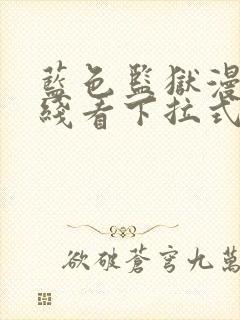 藍色監獄漫
綫看下拉式
欲破蒼穹九萬